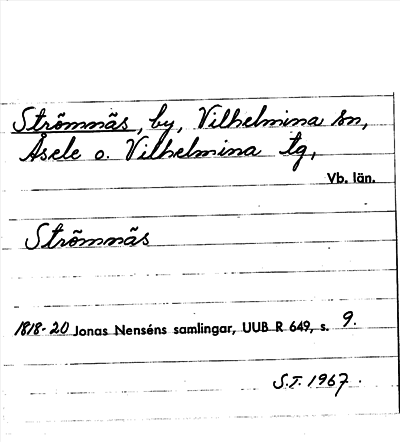 Strömnäs, by, Vilhelmina sn,
Åsele o. Vilhelmina tg,
Vb. län.
Strömnäs
1818-20 Jonas Nenséns samlingar, UUB R 649, s. 9.
S.T. 1967.